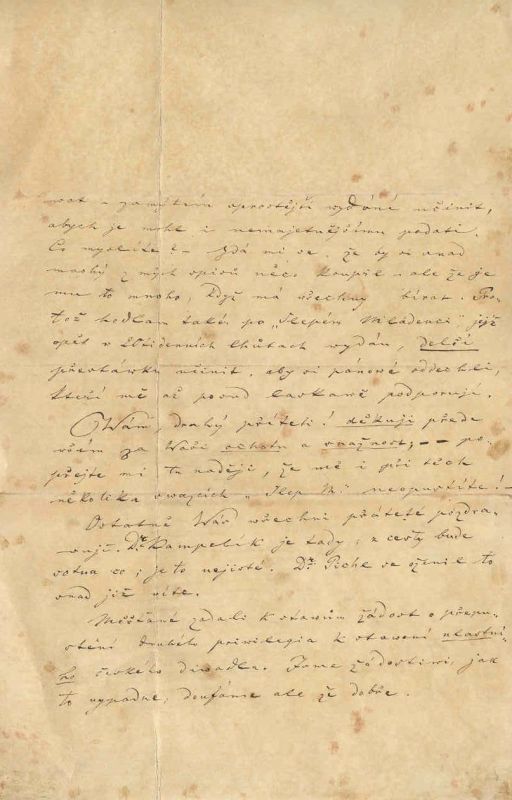 wat a zamýšlím sprostější wydání učinit,
abych je mohl i nemajetnějšímu podati.
Co myslíte? – Zdá mi se, že by si snad
mnohý z mých spisů něco koupil – ale že je
mu to mnoho, když má všechny bírat. Pro-
tož hodlám také po „Slepém Mládenci", jejž
opět v 2týdenních lhůtách wydám, delší
přestávku učinit, aby si pánové oddechli,
kteří mě až posud laskavě podporují.
Wám, drahý příteli! děkuji přede
vším za Waši ochotu a snažnost, – po-
přejte mi tu naději, že mě i při těch
několika swazcích „Slep. M." neopustíte! –
Ostatně Wás všechni přátelé pozdra-
wují. Dr. Kampelík je tady; z cesty bude
sotva co; je to nejisté. Dr. Pichl se oženil to
snad již víte.
Měšťané zadali k stawům žádost o přepu-
štění druhého priwilegia k stawení vlastní-
ho českého diwadla. Jsme žádostiwi, jak
to vypadne, doufáme ale že dobře.